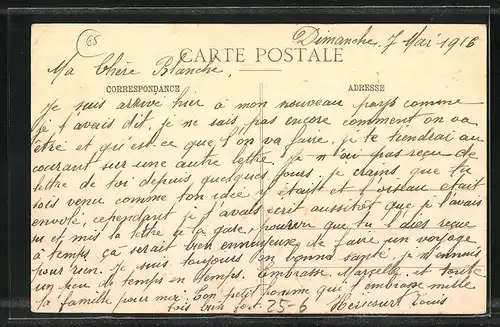 65
Dimanche 7 Mai 1916
CARTE POSTALE
Ma Chère Blanche,
CORRESPONDANCE
ADRESSE
Je suis arrivé hier à mon nouveau pays comme
je t'avais dit, je ne sais pas encore comment on va
être et qui est-ce que l'on va faire, je te tiendrai au
courant sur une autre lettre. Je n'ai pas reçu de
lettre de toi depuis quelques jours, je crains que tu
sois venu comme ton idée y était et l'oiseau était
envolé, cependant je t'avais écrit aussitôt que je l'avais
su et mis la lettre à la gare, pourvu que tu l'aies reçue
à temps, ça serait bien ennuyeuse de faire un voyage
pour rien. Je suis toujours en bonne santé, je m'ennuis
un peu de temps en temps. embrasse Marcelle et toute
la famille pour moi. Ton petit homme qui t'embrasse mille
fois bien fort. 25-6 Héricourt Louis